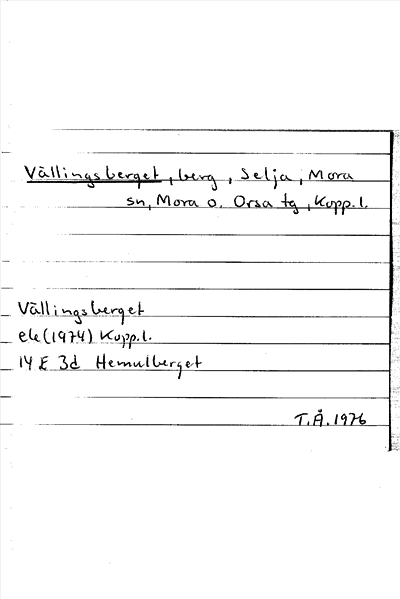 Vällingsberget, berg, Selja, Mora
sn, Mora o. Orsa tg, Kopp.l.
Vällingsberget
ek (1974) Kopp.l.
14 E 3d Hemulberget
T.Å. 1976